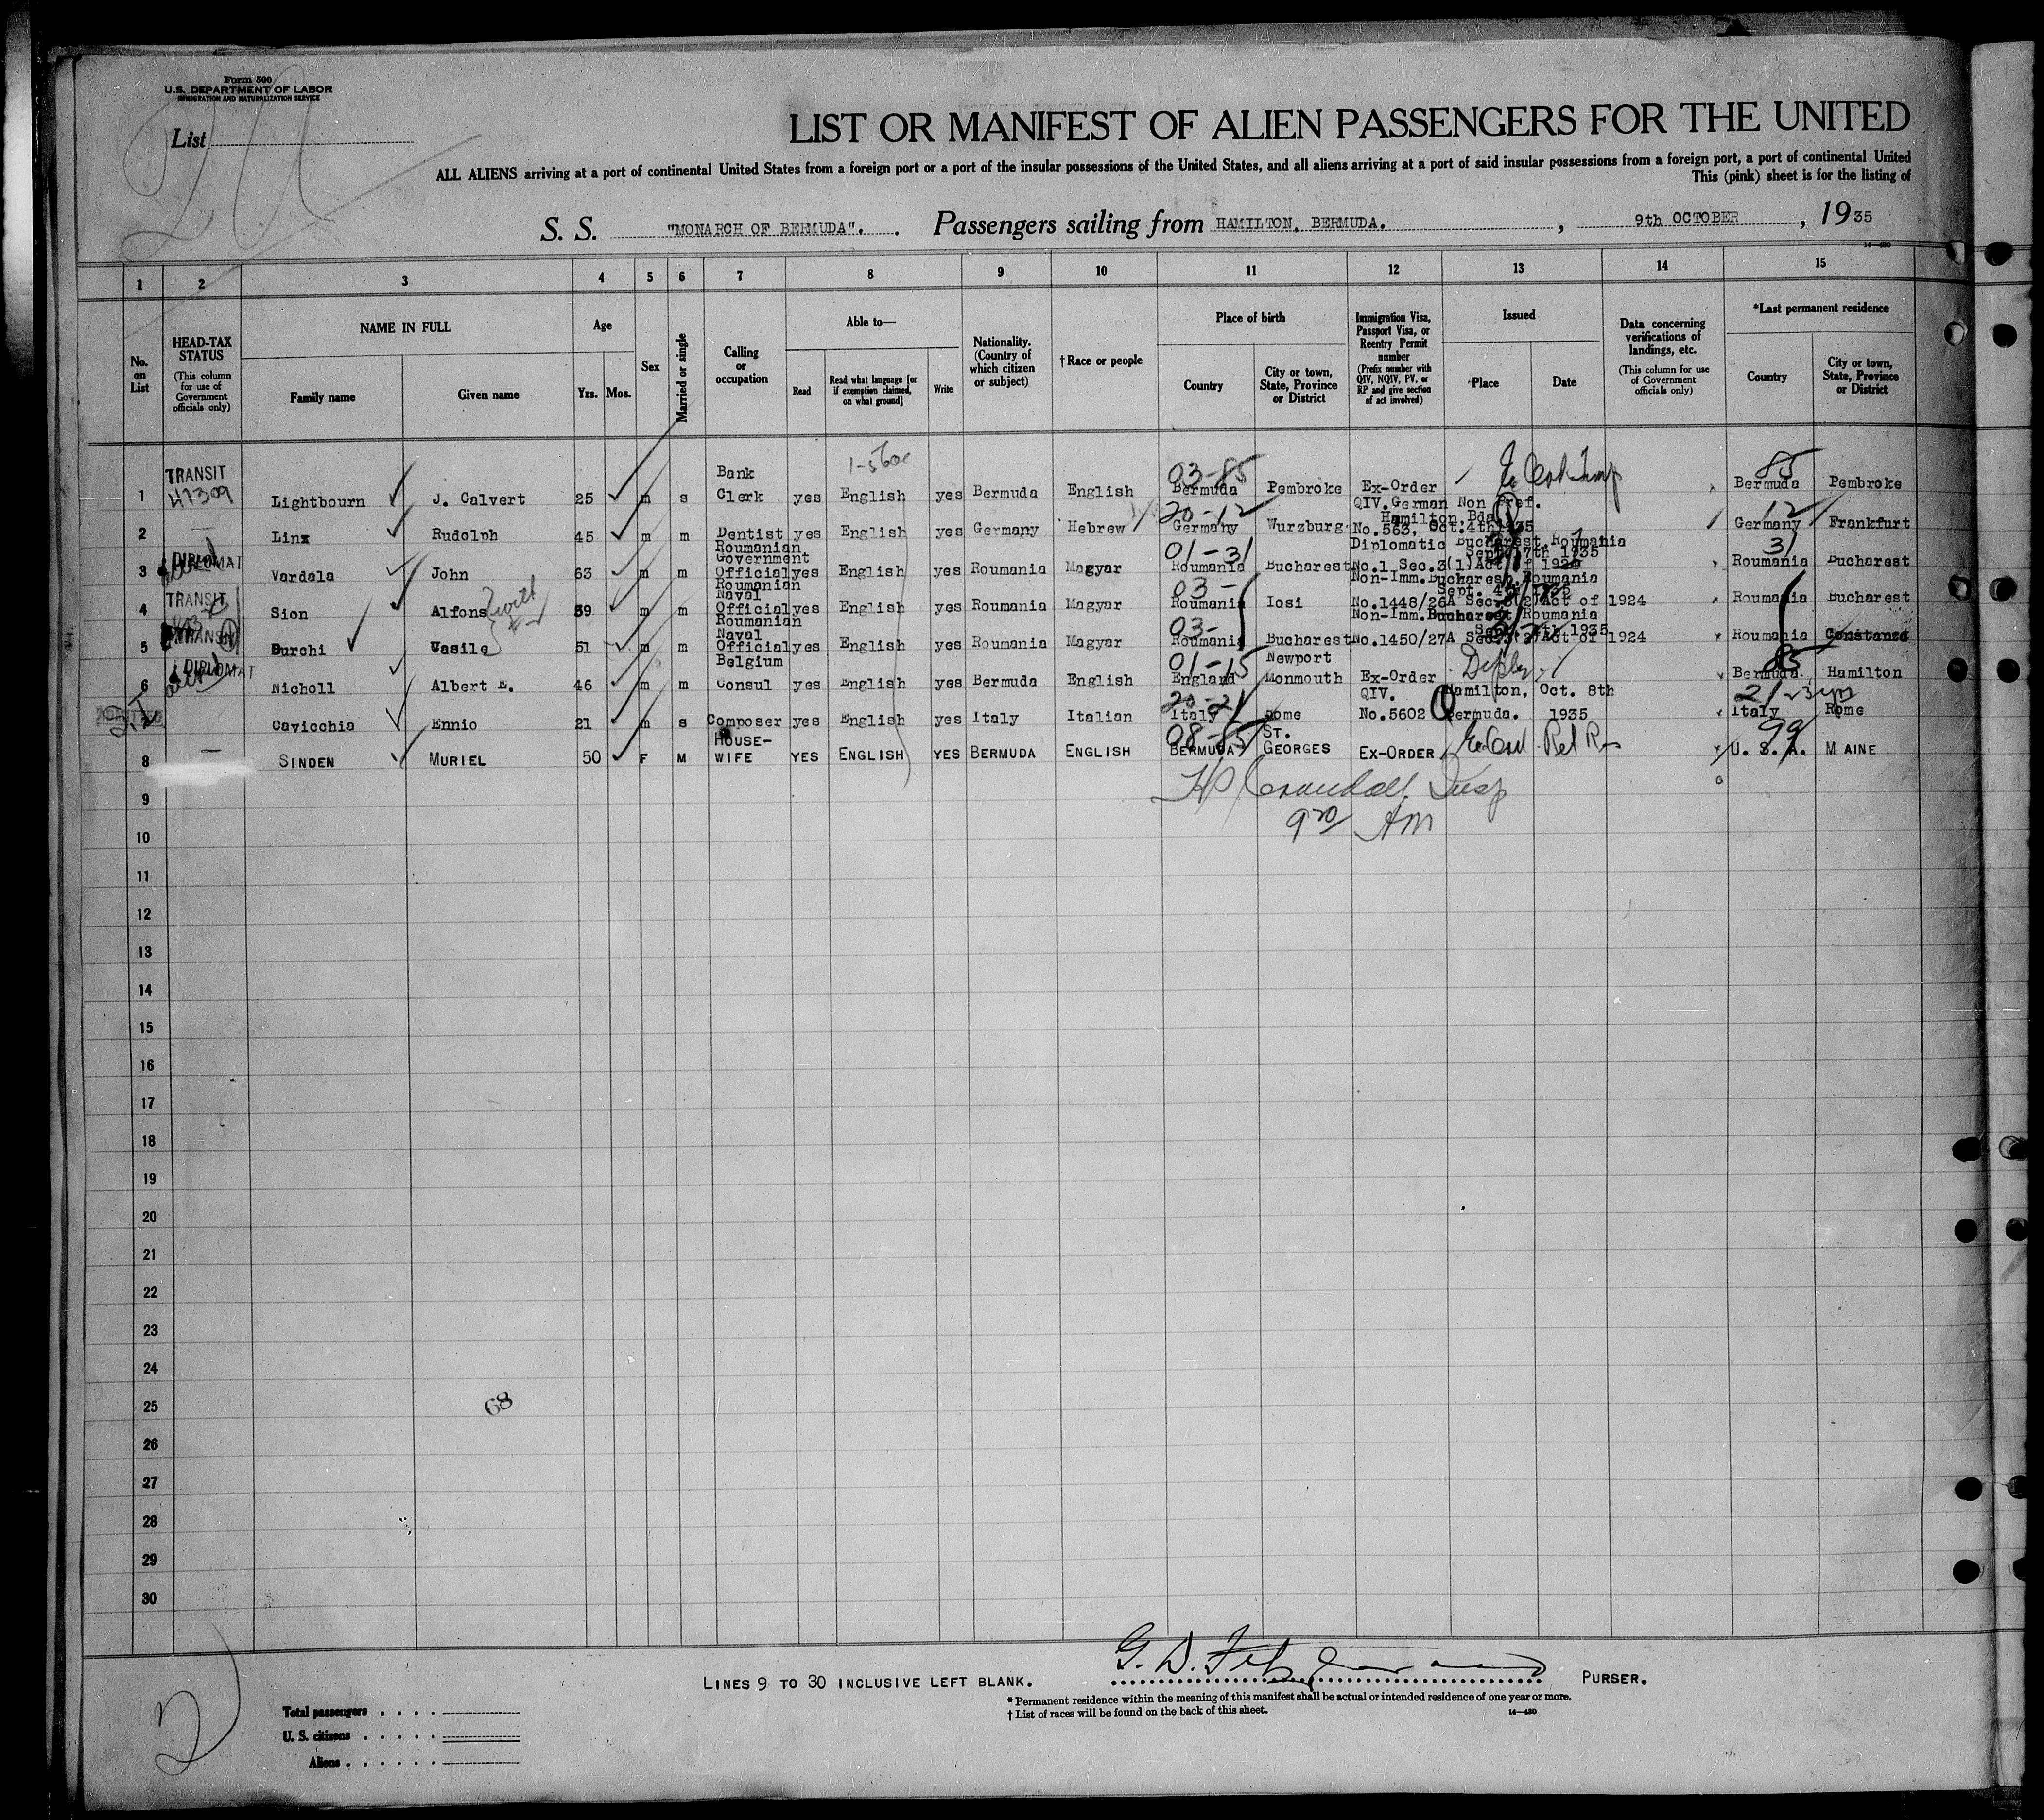 Form 500
U.S. DEPARTMENT OF LABOR
IMMIGRATION AND NATURALIZATION SERVICE
List
LIST OR MANIFEST OF ALIEN PASSENGERS FOR THE UNITED
ALL ALIENS arriving at a port of continental United States from a foreign port or a port of the insular possessions of the United States, and all aliens arriving at a port of said insular possessions from a foreign port, a port of continental United
This (pink) sheet is for the listing of
S. S. "MONARCH OF BERMUDA". Passengers sailing from HAMILTON, BERMUDA. , 9th OCTOBER , 1935
14-430
1 2 3 4 5 6 7 8 9 10 11 12 13 14 15
No. on List
HEAD-TAX STATUS (This column for use of Government officials only)
NAME IN FULL
Family name
Given name
Age
Yrs. Mos.
Sex
Married or single
Calling or occupation
Able to—
Read
Read what language [or if exemption claimed, on what ground]
Write
Nationality. (Country of which citizen or subject)
† Race or people
Place of birth
Country
City or town, State, Province or District
Immigration Visa, Passport Visa, or Reentry Permit number (Prefix number with QIV, NQIV, PV, or RP and give section of act involved)
Issued
Place
Date
Data concerning verifications of landings, etc. (This column for use of Government officials only)
*Last permanent residence
Country
City or town, State, Province or District
1 TRANSIT 47309 Lightbourn J. Calvert 25 m s Bank Clerk yes English yes Bermuda English 03-85 Bermuda Pembroke Ex-Order 85 Bermuda Pembroke
2 Linx Rudolph 45 m m Dentist yes English yes Germany Hebrew 20-12 Germany Wurzburg QIV. German Non Pref. Hamilton Bda No. 563, Oct. 4th 1935 12 Germany Frankfurt
3 DIPLOMAT Vardala John 63 m m Roumanian Government Official yes English yes Roumania Magyar 01-31 Roumania Bucharest Diplomatic Bucharest, Roumania Sept. 17th 1935 No.1 Sec.3(1) Act of 1924 31 Roumania Bucharest
4 TRANSIT Sion Alfons 59 m m Roumanian Naval Official yes English yes Roumania Magyar 03- Roumania Iosi Non-Imm. Bucharest, Roumania Sept. 4th 1935 No.1448/26A Sec.3(2) Act of 1924 Roumania Bucharest
5 TRANSIT Durchi Vasile 51 m m Roumanian Naval Official yes English yes Roumania Magyar 03- Roumania Bucharest Non-Imm. Bucharest Roumania 1935 No.1450/27A Sec.3(2) Act of 1924 Roumania Constanza
6 DIPLOMAT Nicholl Albert E. 46 m m Belgium Consul yes English yes Bermuda English 01-15 England Newport Monmouth Ex-Order 85 Bermuda. Hamilton
Cavicchia Ennio 21 m s Composer yes English yes Italy Italian 20-21 Italy Rome QIV. No.5602 Hamilton, Bermuda. Oct. 8th 1935 21 Italy Rome
8 SINDEN MURIEL 50 F M HOUSE-WIFE YES ENGLISH YES BERMUDA ENGLISH 08-85 BERMUDA ST. GEORGES EX-ORDER 99 U. S. A. MAINE
9
Crandall Insp
9 30 AM
10
11
12
13
14
15
16
17
18
19
20
21
22
23
24
25
68
26
27
28
29
30
LINES 9 TO 30 INCLUSIVE LEFT BLANK. PURSER.
* Permanent residence within the meaning of this manifest shall be actual or intended residence of one year or more.
† List of races will be found on the back of this sheet. 14-430
Total passengers
U. S. citizens
Aliens
2